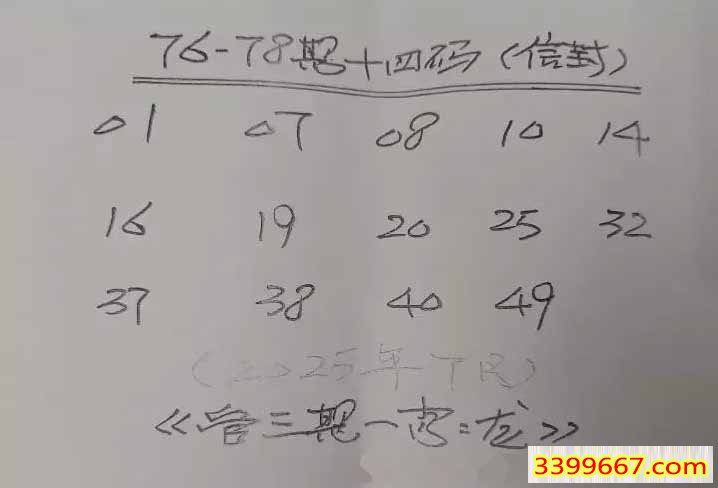 76-78期十四码(信封)
01 07 08 10 14
16 19 20 25 32
37 38 40 49
(2025年TR)
《管三期一肖:龙》
3399667.com